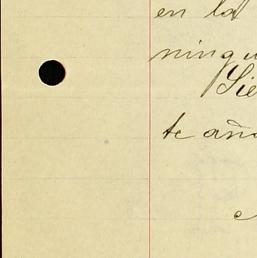 en la
ningu
Sie
te año